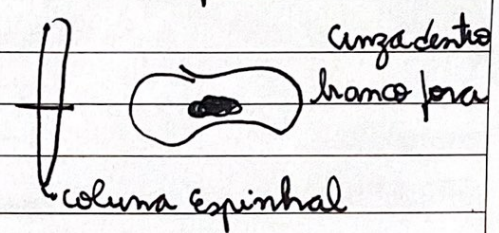 cinza dentro
branco fora
coluna espinhal